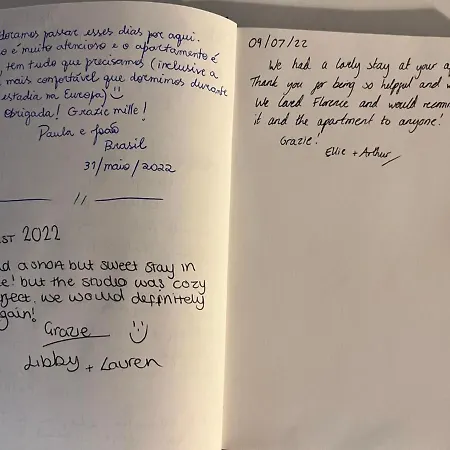 doramos passar esses dias por aqui.
o é muito atencioso e o apartamento é
tem tudo que precisamos (inclusive a
mais confortável que dormimos durante
estadia na Europa)
Obrigada! Grazie mille!
Paula e João
Brasil
31/maio/2022
//
ST 2022
d a short but sweet stay in
e! but the studio was cozy
rfect. we would definitely
gain!
Grazie
Libby + Lauren
09/07/22
We had a lovely stay at your a
Thank you for being so helpful and w
We loved Florence and would recomm
it and the apartment to anyone!
Grazie!
Ellie + Arthur